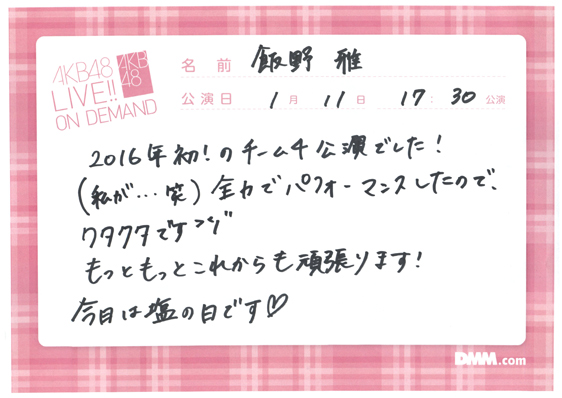 AKB48
LIVE!!
ON DEMAND
AKB
48
名前 飯野 雅
公演日 1月 11日 17:30公演
2016年初!のチーム4公演でした!
(私が…笑)全力でパフォーマンスしたので、
クタクタですヅ
もっともっとこれからも頑張ります!
今日は塩の日です♡
DMM.com